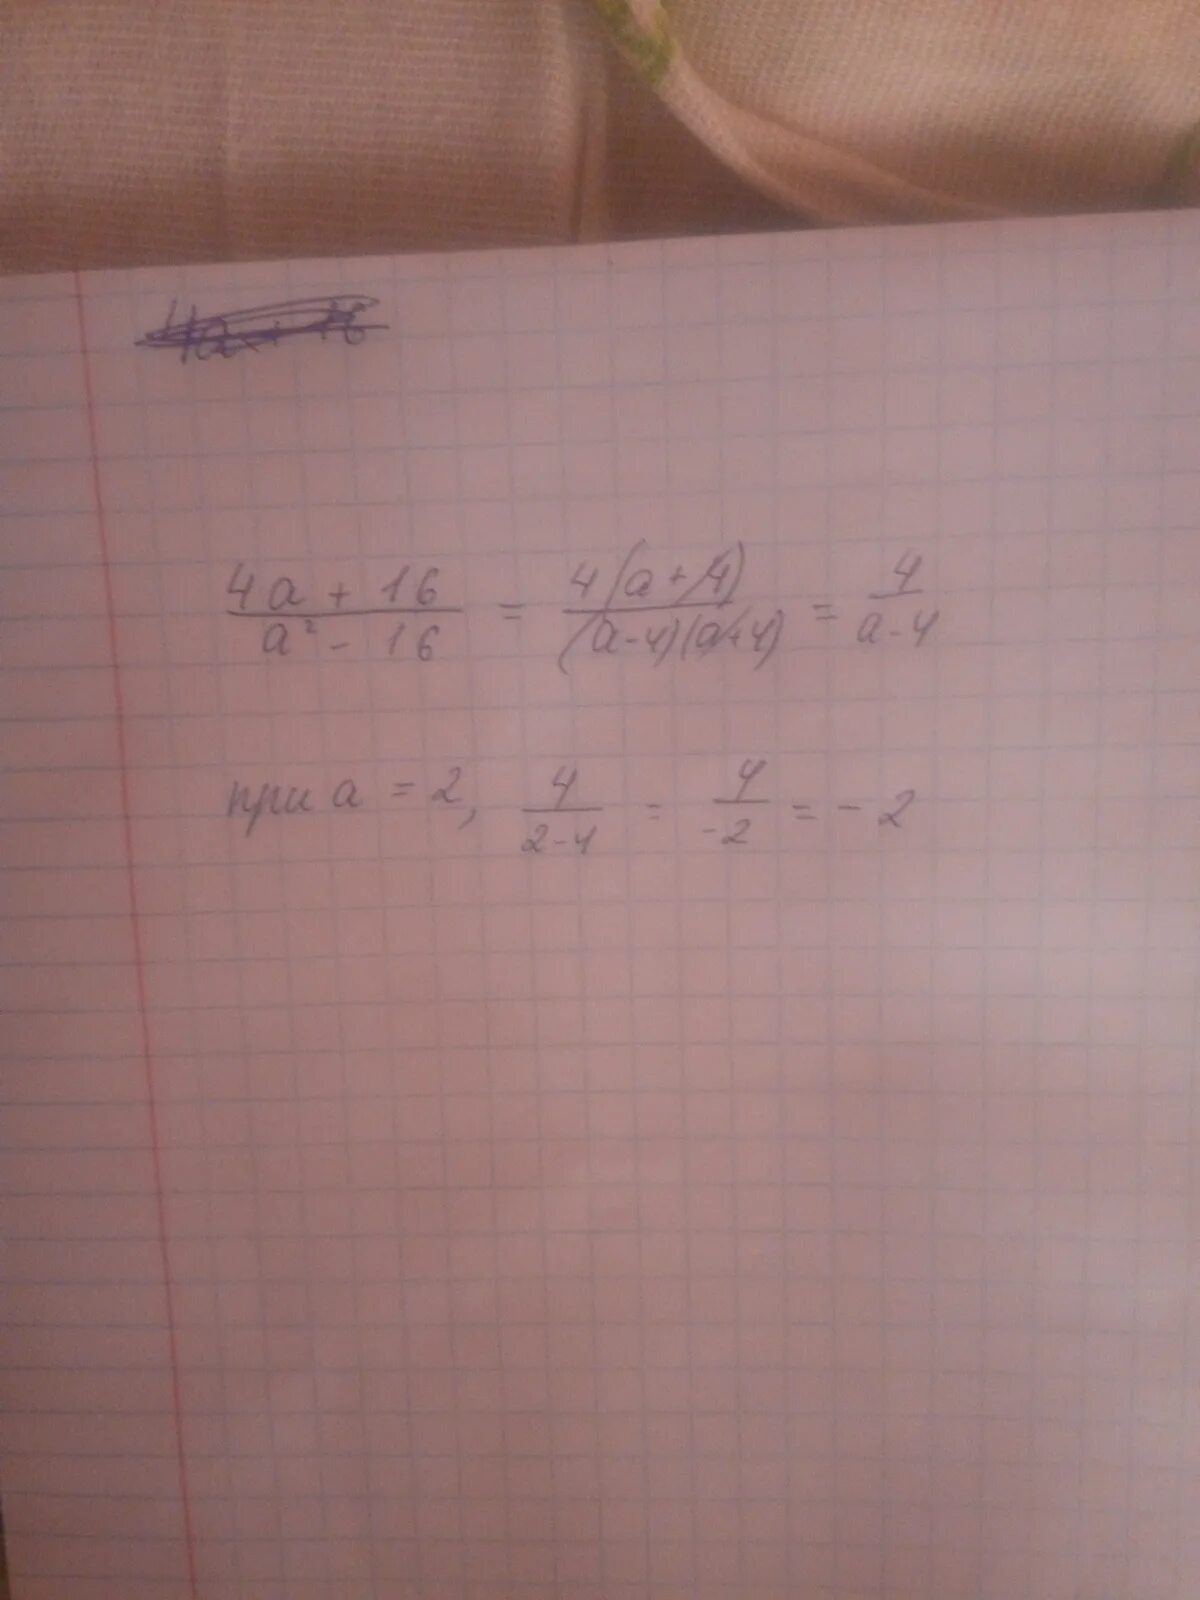 4a + 16
4a + 16 / a² - 16 = 4(a+4) / (a-4)(a+4) = 4 / a-4
при a = 2, 4 / 2-4 = 4 / -2 = -2